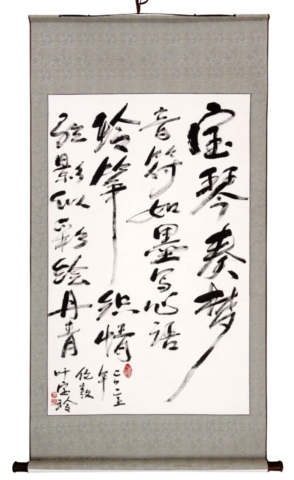 宝琴奏梦
音符如墨写心语
玲筝织情
弦影似彩绘丹青
二〇二五
年
伦敦
叶宝玲